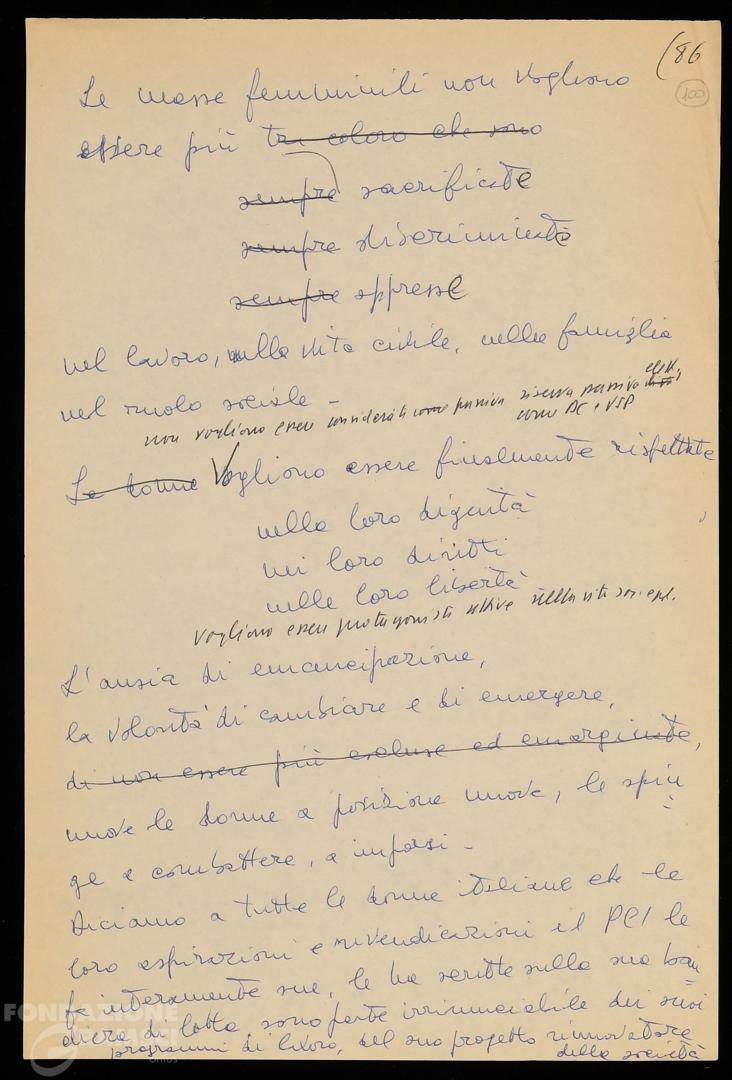 (86
100
Le masse femminili non vogliono
essere più tra coloro che sono
sempre sacrificate
sempre discriminate
sempre oppresse
nel lavoro, nella vita civile, nella famiglia
nel ruolo sociale -
non vogliono essere considerati come passiva riserva passiva
come DC e PSI
Le donne Vogliono essere finalmente rispettate
nella loro dignità
nei loro diritti
nelle loro libertà
Vogliono essere protagonisti attive della vita
L'ansia di emancipazione,
la volontà di cambiare e di emergere,
di non essere più escluse ed emarginate,
muove le donne a posizione nuove, le spin
ge a combattere, a imporsi -
Diciamo a tutte le donne italiane che le
loro aspirazioni e rivendicazioni il PCI le
fa interamente sue, le ha scritte sulla sua ban
diera di lotta, sono parte irrinunciabile dei suoi
programmi di lavoro, del suo progetto rinnovatore
della società
FONDAZIONE
GRAMSCI
onlus